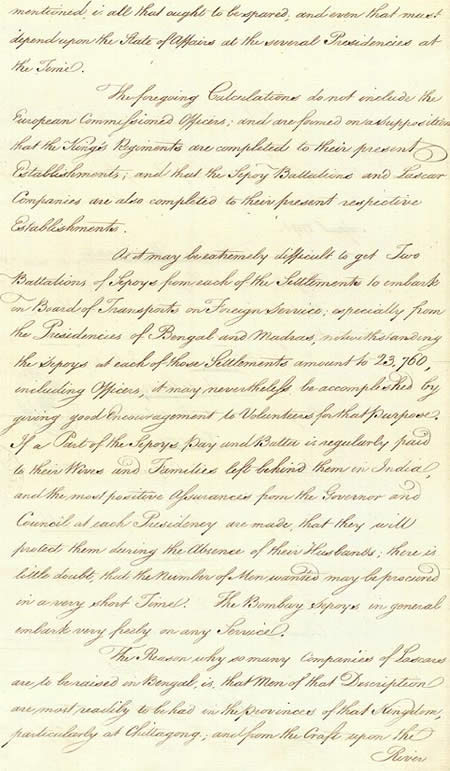 mentioned, is all that ought to be spared, and even that must
depend upon the State of Affairs at the several Presidencies at
the Time.
The foregoing Calculations do not include the
European Commissioned Officers; and are formed on a supposition
that the King's Regiments are completed to their present
Establishments; and that the Sepoy Battalions and Lascar
Companies are also completed to their present respective
Establishments.
As it may be extremely difficult to get Two
Battalions of Sepoys from each of the Settlements to embark
on Board of Transports on Foreign Service; especially from
the Presidencies of Bengal and Madras, notwithstanding
the Sepoys at each of those Settlements amount to 23,760,
including Officers, it may nevertheless be accomplished by
giving good Encouragement to Volunteers for that Purpose.
If a Part of the Sepoys Pay and Batta is regularly paid
to their Wives and Families left behind them in India,
and the most positive Assurances from the Governor and
Council at each Presidency are made, that they will
protect them during the Absence of their Husbands; there is
little doubt, that the Number of Men wanted may be procured
in a very short Time. The Bombay Sepoys in general
embark very freely on any Service.
The Reason why so many Companies of Lascars
are to be raised in Bengal, is, that Men of that Description
are most readily to be had in the Provinces of that Kingdom,
particularly at Chittagong; and from the Craft upon the
River